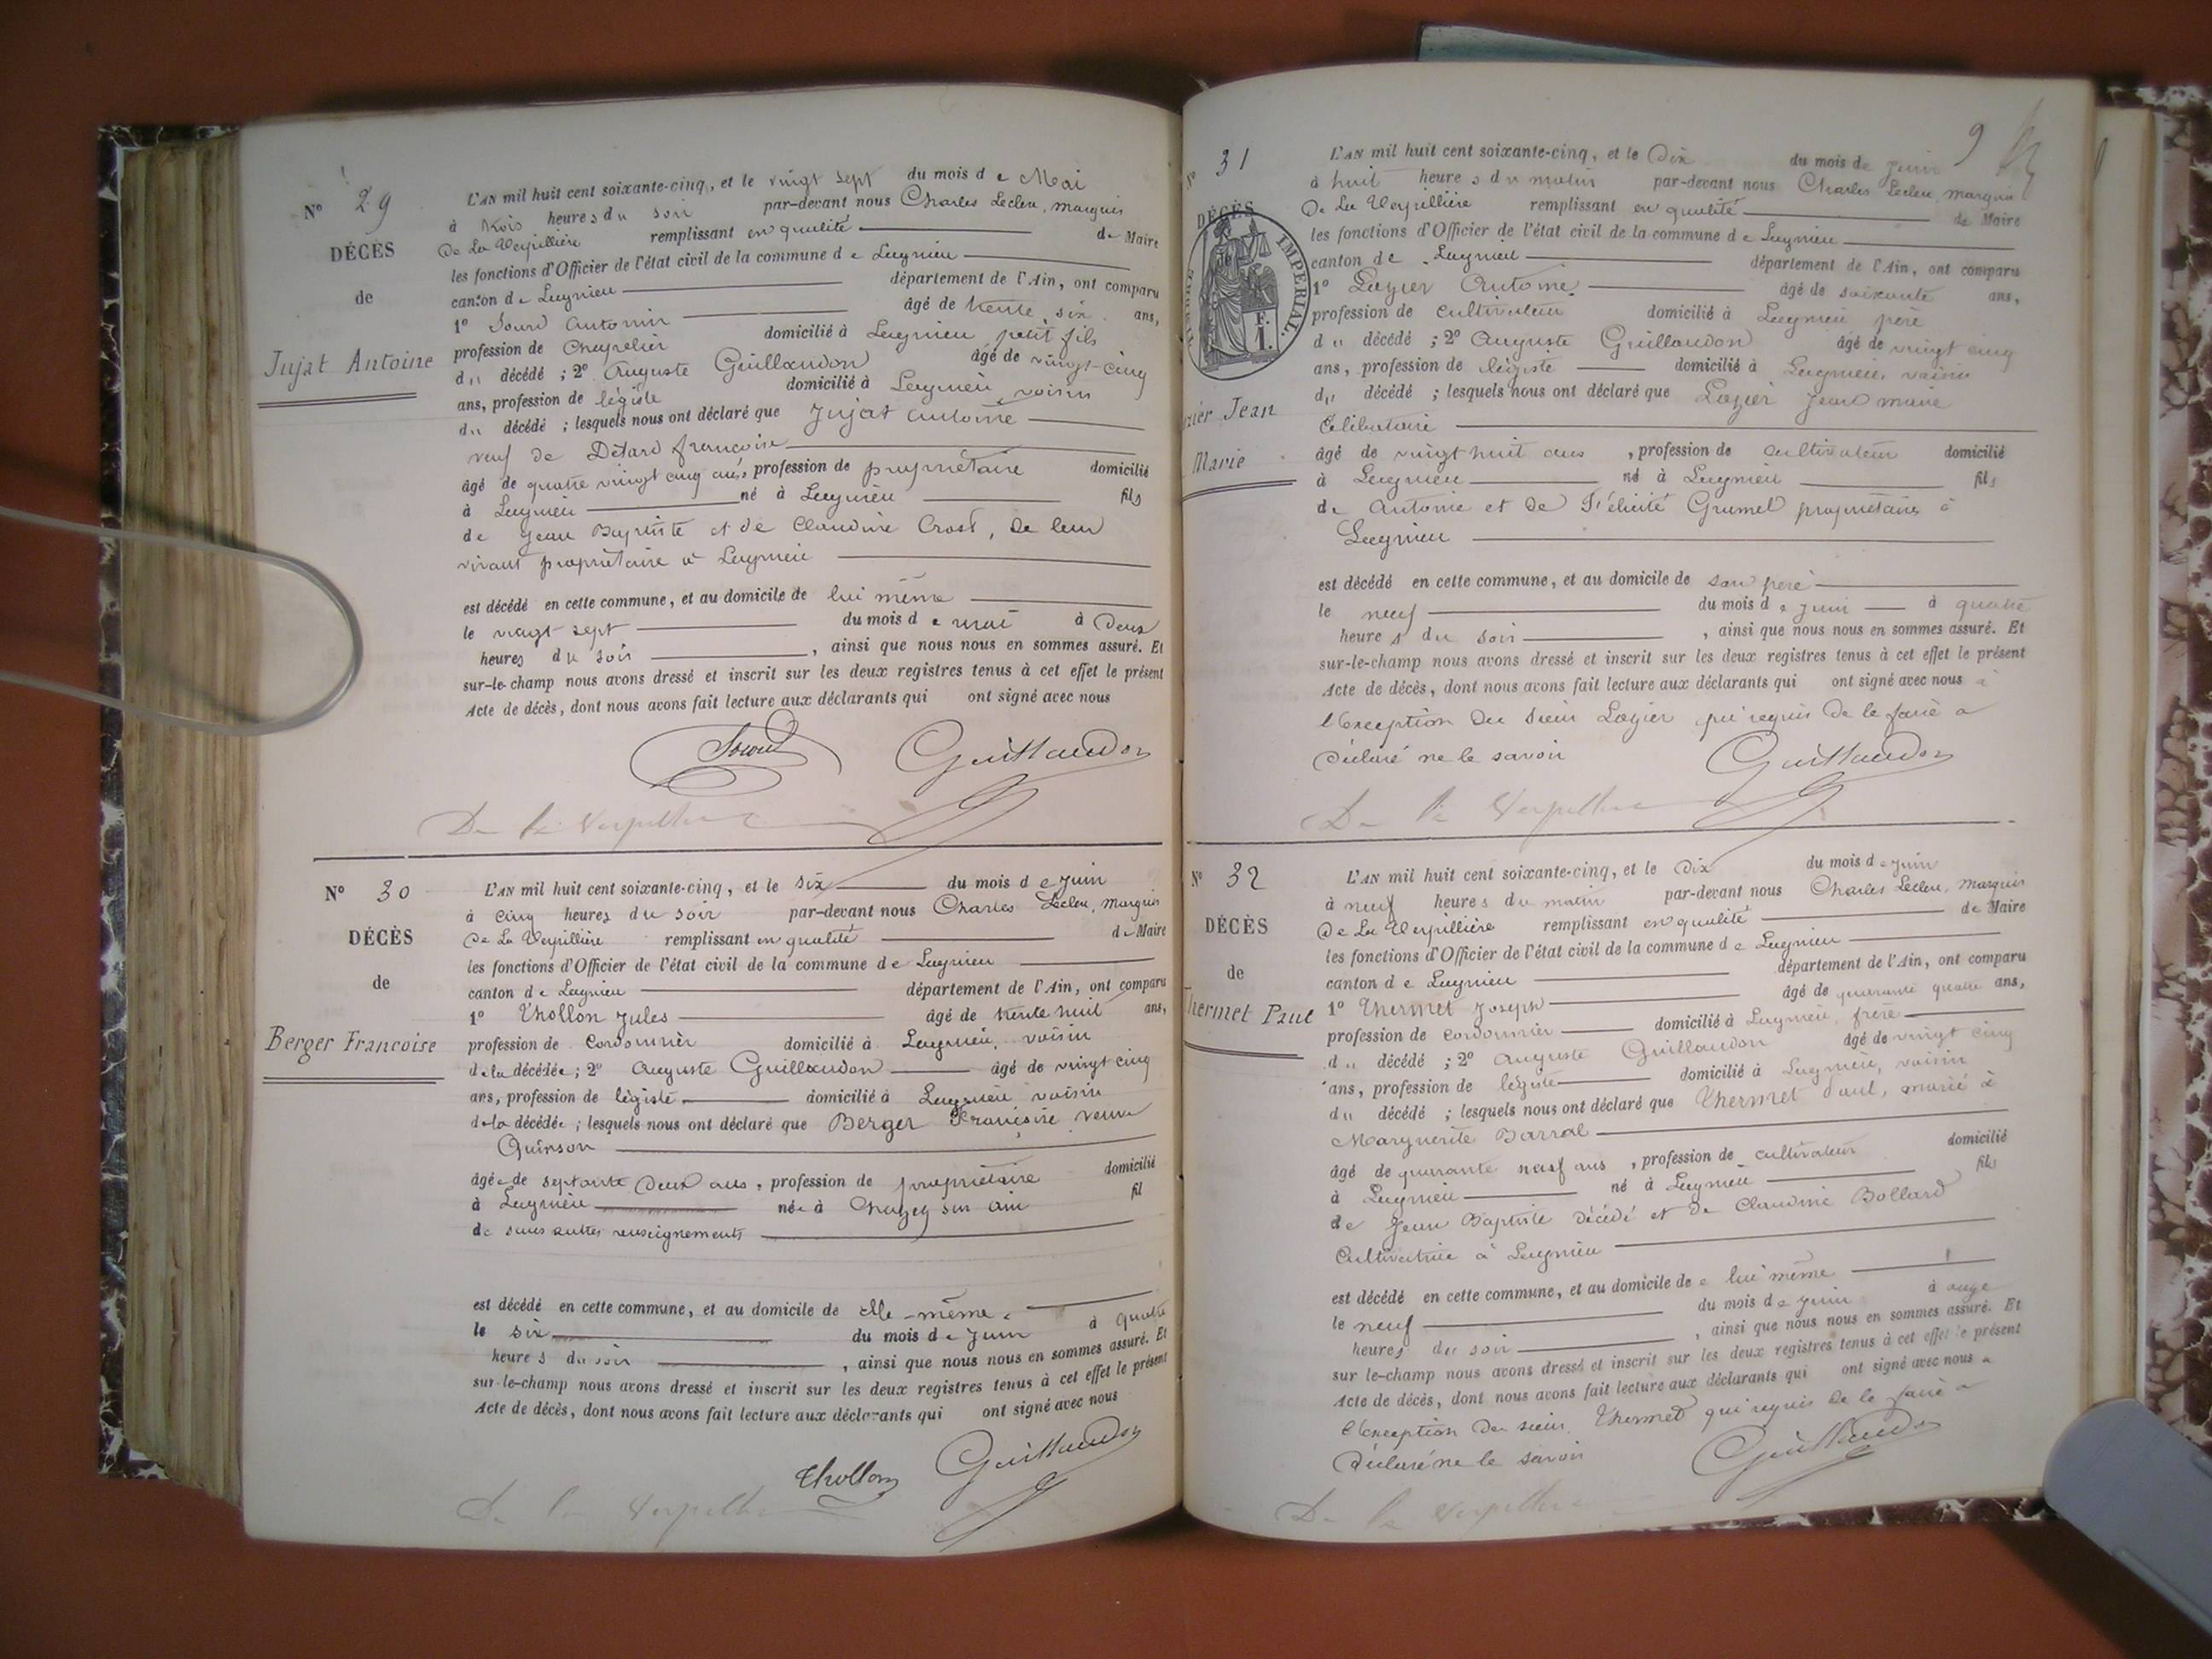 N° 29
DÉCÈS
de
Jujat Antoine
L'AN mil huit cent soixante-cinq, et le vingt sept du mois de Mai
à trois heures du soir par-devant nous Charles Lecleu, marquis
De La Verpillière remplissant en qualité de Maire
les fonctions d'Officier de l'état civil de la commune de Lagnieu
canton de Lagnieu département de l'Ain, ont comparu
1° Sourd Antonin âgé de trente six ans,
profession de Chapelier domicilié à Lagnieu petit fils
du décédé ; 2° Auguste Guillaudon âgé de vingt-cinq
ans, profession de légiste domicilié à Lagnieu, voisin
du décédé ; lesquels nous ont déclaré que Jujat Antoine
veuf de Détard françoise
âgé de quatre vingt cinq ans, profession de propriétaire domicilié
à Lagnieu né à Lagnieu fils
de Jean Baptiste et de Claudine Crost, de leur
vivant propriétaire à Lagnieu
est décédé en cette commune, et au domicile de lui même
le vingt sept du mois de mai à Deux
heures du soir, ainsi que nous nous en sommes assuré. Et
sur-le-champ nous avons dressé et inscrit sur les deux registres tenus à cet effet le présent
Acte de décès, dont nous avons fait lecture aux déclarants qui ont signé avec nous
Sourd Guillaudon
De la Verpillière
N° 30
DÉCÈS
de
Berger Francoise
L'AN mil huit cent soixante-cinq, et le six du mois de Juin
à cinq heures du soir par-devant nous Charles Lecleu, marquis
De La Verpillière remplissant en qualité de Maire
les fonctions d'Officier de l'état civil de la commune de Lagnieu
canton de Lagnieu département de l'Ain, ont comparu
1° Thollon Jules âgé de trente huit ans,
profession de Cordonnier domicilié à Lagnieu, voisin
de la décédée; 2° Auguste Guillaudon âgé de vingt cinq
ans, profession de légiste domicilié à Lagnieu voisin
de la décédée ; lesquels nous ont déclaré que Berger Françoise veuve
Quinson
âgée de septante Deux ans, profession de propriétaire domicilié
à Lagnieu née à Chazey sur ain fil
de sans autres renseignements
est décédé en cette commune, et au domicile de elle-même
le six du mois de Juin à quatre
heures du soir, ainsi que nous nous en sommes assuré. Et
sur-le-champ nous avons dressé et inscrit sur les deux registres tenus à cet effet le présent
Acte de décès, dont nous avons fait lecture aux déclarants qui ont signé avec nous
Thollon Guillaudon
De la Verpillière
9
N° 31
DÉCÈS
TIMBRE IMPÉRIAL.
F.
1.
zier Jean
Marie
L'AN mil huit cent soixante-cinq, et le Dix du mois de Juin
à huit heures du matin par-devant nous Charles Lecleu, marquis
De La Verpillière remplissant en qualité de Maire
les fonctions d'Officier de l'état civil de la commune de Lagnieu
canton de Lagnieu département de l'Ain, ont comparu
1° Lozier Antoine âgé de soixante ans,
profession de cultivateur domicilié à Lagnieu père
du décédé ; 2° Auguste Guillaudon âgé de vingt cinq
ans, profession de légiste domicilié à Lagnieu, voisin
du décédé ; lesquels nous ont déclaré que Lozier Jean marie
Célibataire
âgé de vingt huit ans, profession de cultivateur domicilié
à Lagnieu né à Lagnieu fils
de Antoine et de Félicité Grumel propriétaires à
Lagnieu
est décédé en cette commune, et au domicile de son père
le neuf du mois de Juin à quatre
heures du soir, ainsi que nous nous en sommes assuré. Et
sur-le-champ nous avons dressé et inscrit sur les deux registres tenus à cet effet le présent
Acte de décès, dont nous avons fait lecture aux déclarants qui ont signé avec nous à
l'exception du sieur Lozier qui requis de le faire a
Déclaré ne le savoir Guillaudon
De la Verpillière
N° 32
DÉCÈS
de
Thermet Paul
L'AN mil huit cent soixante-cinq, et le Dix du mois de Juin
à neuf heures du matin par-devant nous Charles Lecleu, marquis
De La Verpillière remplissant en qualité de Maire
les fonctions d'Officier de l'état civil de la commune de Lagnieu
canton de Lagnieu département de l'Ain, ont comparu
1° Thermet Joseph âgé de quarante quatre ans,
profession de cordonnier domicilié à Lagnieu, frère
du décédé ; 2° Auguste Guillaudon âgé de vingt cinq
ans, profession de légiste domicilié à Lagnieu, voisin
du décédé ; lesquels nous ont déclaré que Thermet Paul, marié à
Marguerite Barral
âgé de quarante neuf ans, profession de cultivateur domicilié
à Lagnieu né à Lagnieu fils
de Jean Baptiste décédé et de Claudine Bollard
Cultivatrice à Lagnieu
est décédé en cette commune, et au domicile de lui même
le neuf du mois de Juin à onze
heures du soir, ainsi que nous nous en sommes assuré. Et
sur-le-champ nous avons dressé et inscrit sur les deux registres tenus à cet effet le présent
Acte de décès, dont nous avons fait lecture aux déclarants qui ont signé avec nous a
l'exception du sieur Thermet qui requis de le faire a
Déclaré ne le savoir Guillaudon
De la Verpillière